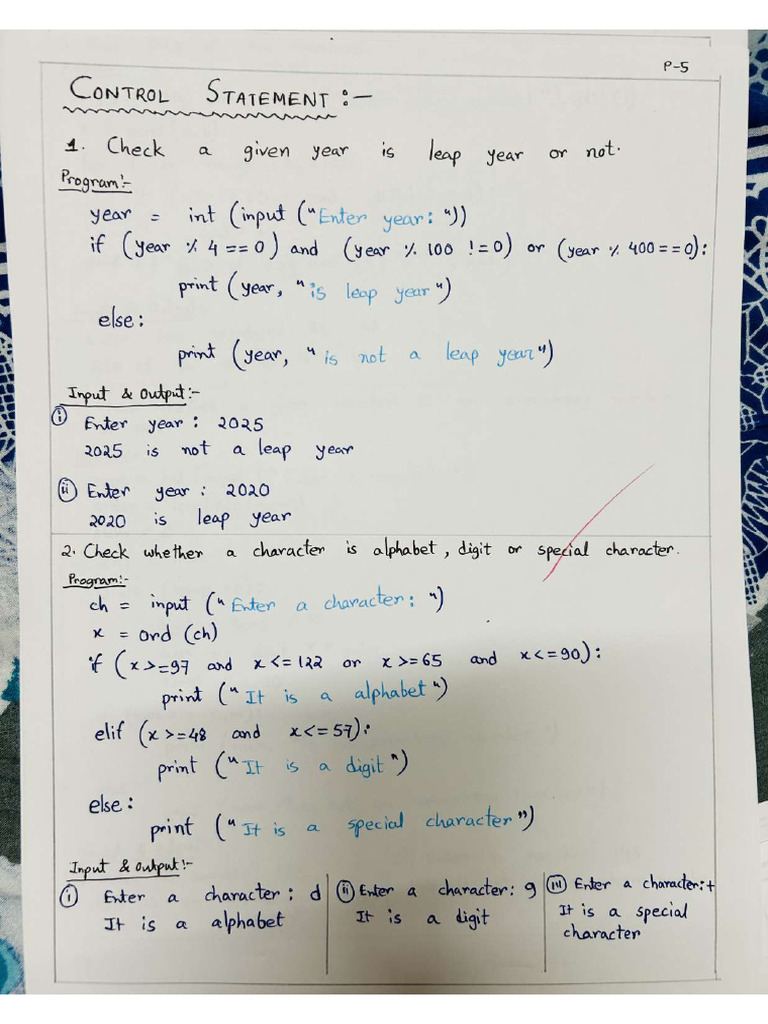 P-5
CONTROL STATEMENT :-
1. Check a given year is leap year or not.
Program:-
year = int (input ("Enter year: "))
if (year % 4 == 0) and (year % 100 != 0) or (year % 400 == 0):
print (year, "is leap year")
else:
print (year, "is not a leap year")
Input & Output:-
(i) Enter year: 2025
2025 is not a leap year
(ii) Enter year: 2020
2020 is leap year
2. Check whether a character is alphabet, digit or special character.
Program:-
ch = input ("Enter a character: ")
x = ord (ch)
if (x >= 97 and x <= 122 or x >= 65 and x <= 90):
print ("It is a alphabet")
elif (x >= 48 and x <= 57):
print ("It is a digit")
else:
print ("It is a special character")
Input & Output:-
(i) Enter a character: d
It is a alphabet
(ii) Enter a character: 9
It is a digit
(iii) Enter a character: +
It is a special
character